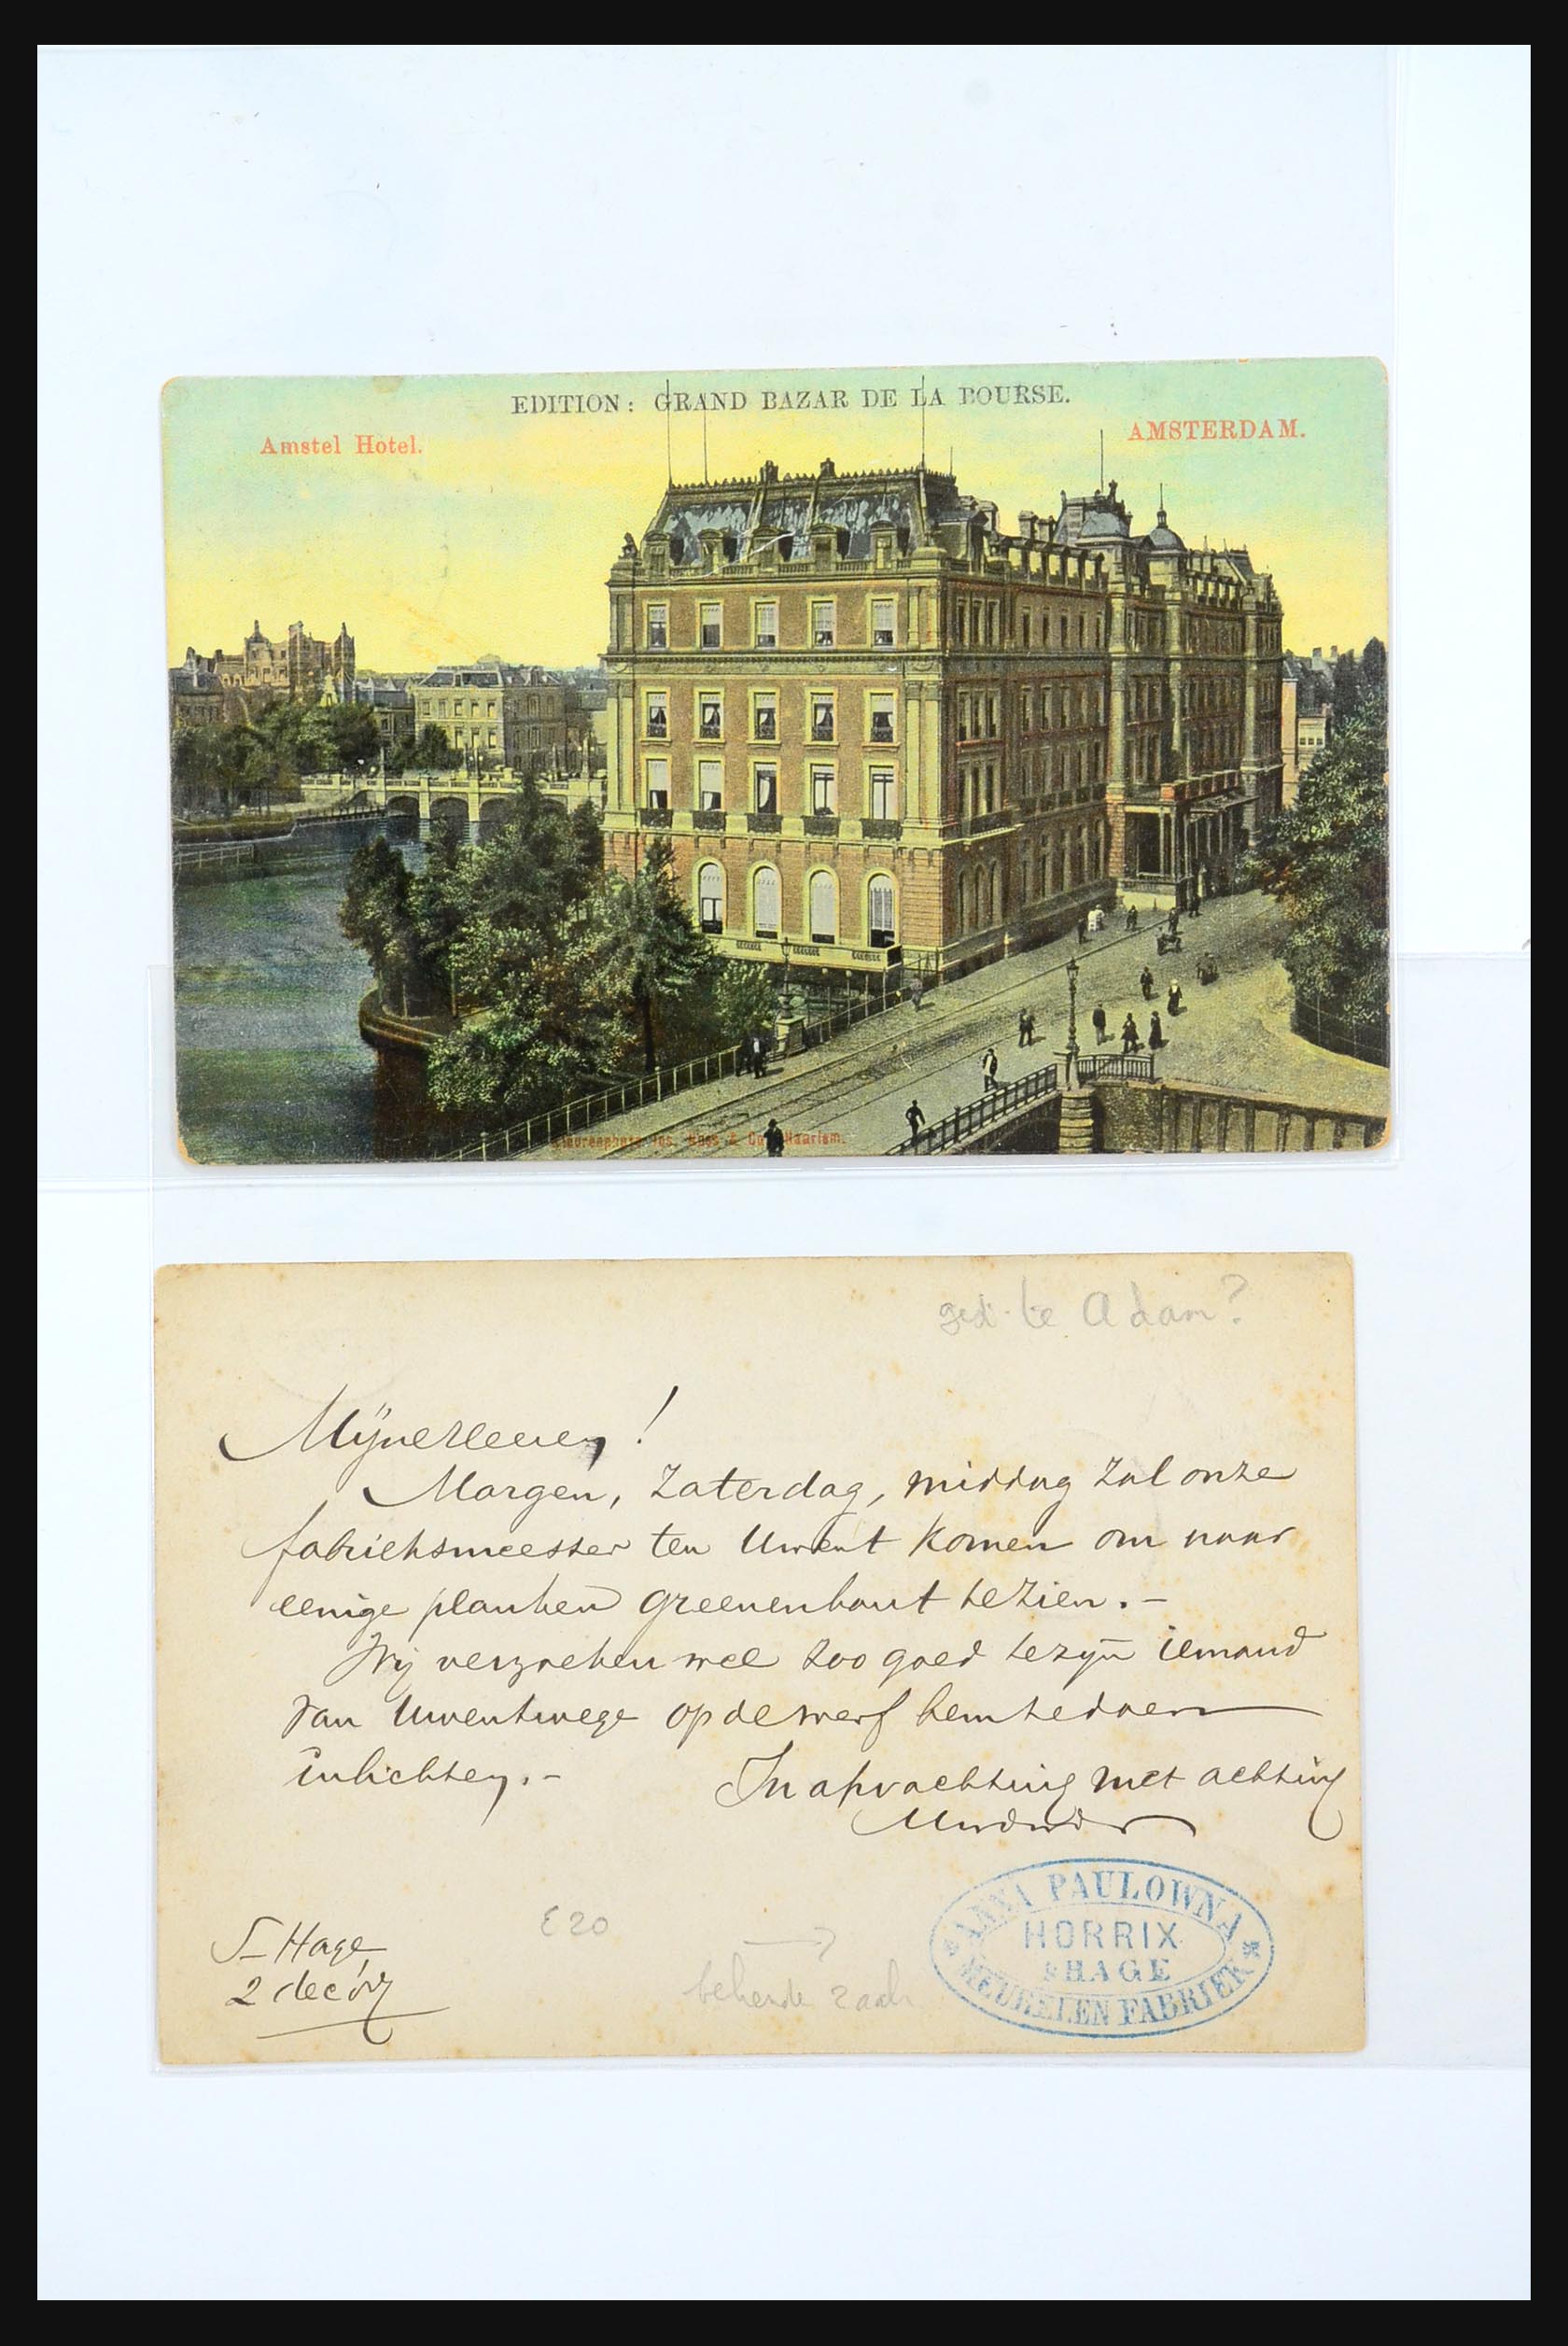 EDITION: GRAND BAZAR DE LA BOURSE.
Amstel Hotel.
AMSTERDAM.
Jos. & Co. Haarlem.
ged. te Adam?
Mijneheeren!
Morgen, Zaterdag, middag zal onze
fabrieksmeester ten Uwent komen om naar
eenige planken greenenhout te zien. -
Wij verzoeken wel zoo goed te zijn iemand
van Uwentwege op de werf hem te doen
inlichten. -
In afwachting met achting
S- Hage,
2 dec
E20
bekende zaak
ANNA PAULOWNA
HORRIX
s HAGE
MEUBELEN FABRIEK